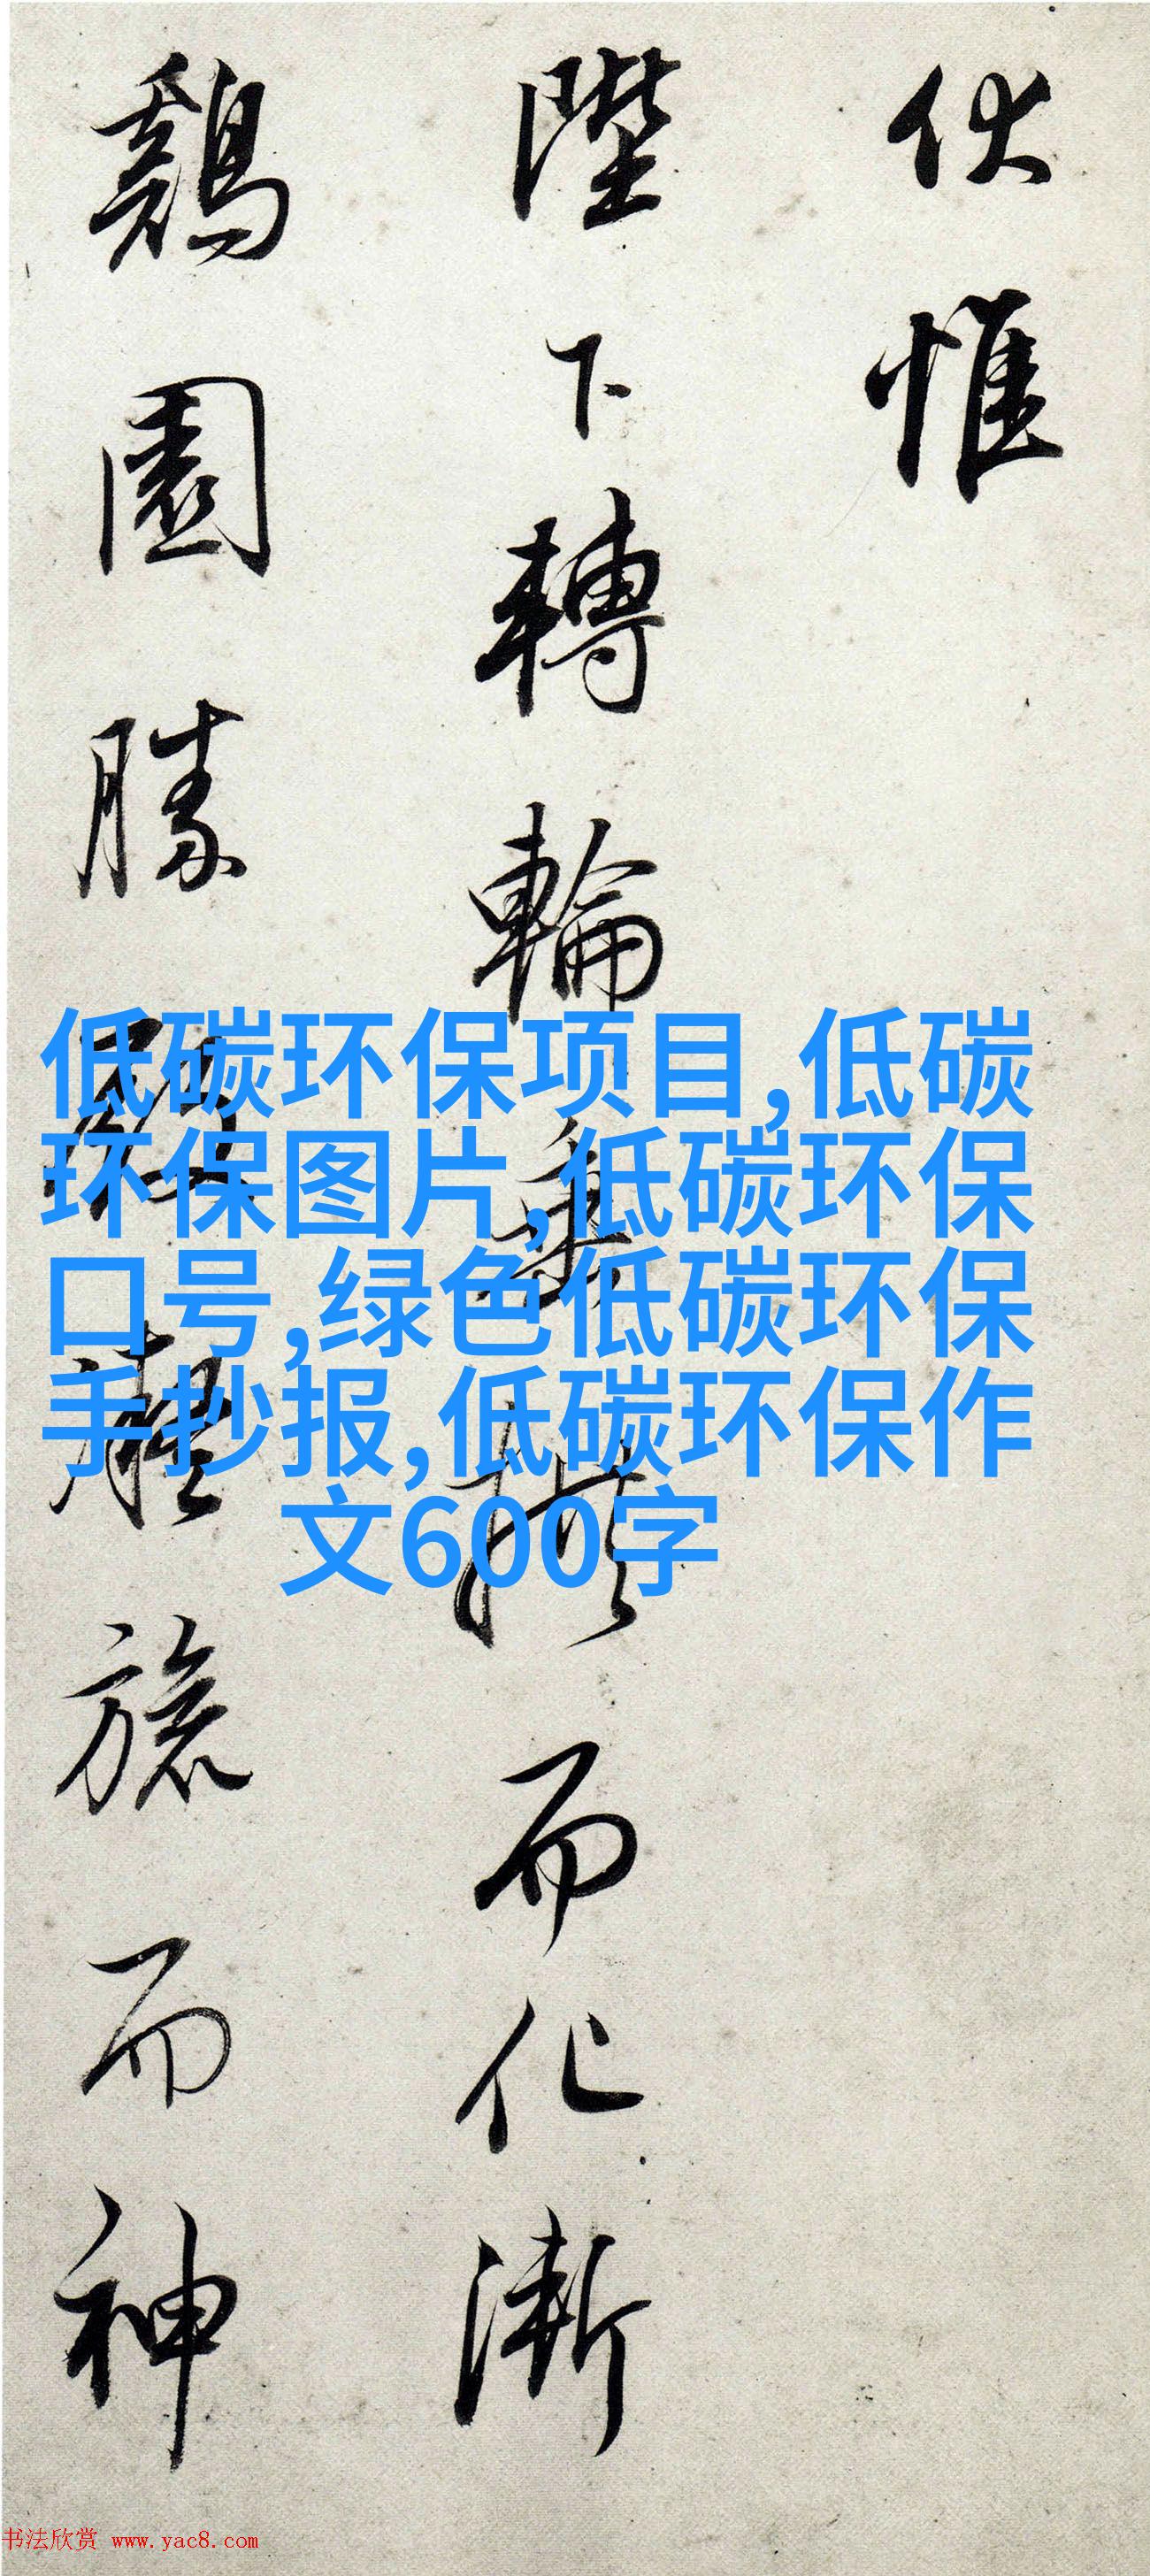 伏惟
陛下轉輪垂拱而化漸
鷄園勝而神
低碳环保项目,低碳
环保图片,低碳环保
口号,绿色低碳环保
手抄报,低碳环保作
文600字
书法欣赏 www.yac8.com